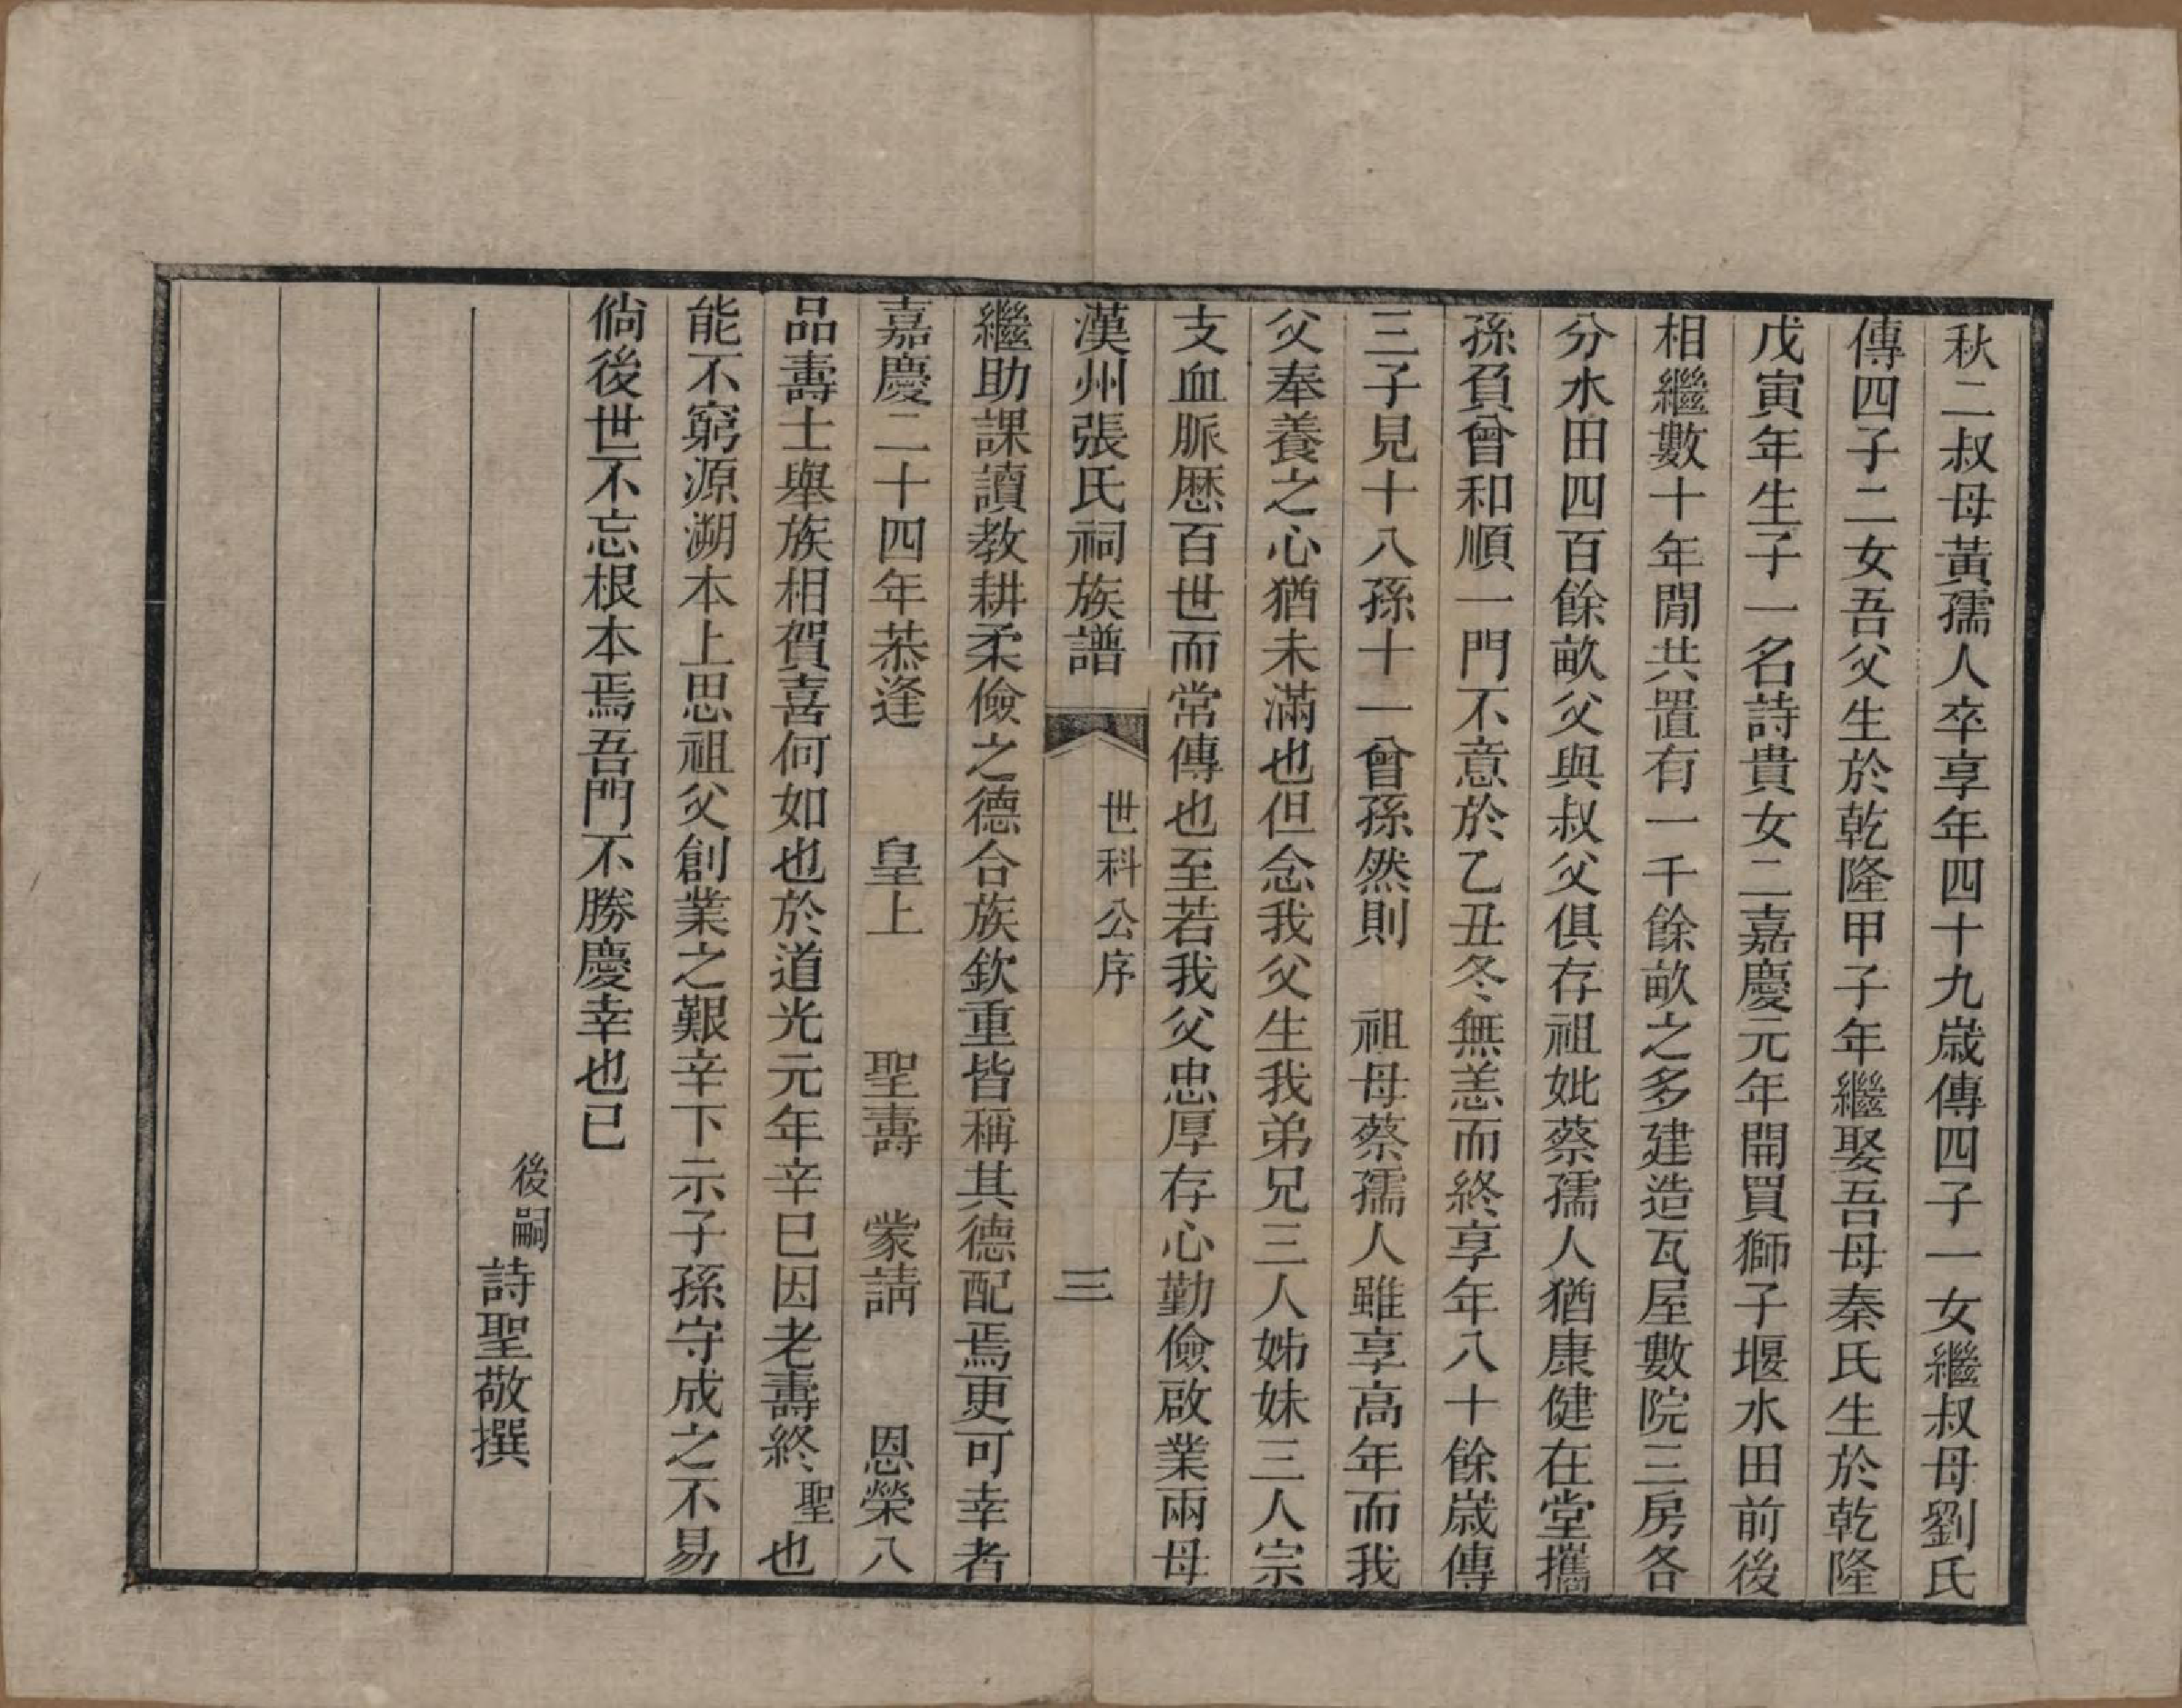 秋二叔母黃孺人卒享年四十九歲傳四子一女繼叔母劉氏
傳四子二女吾父生於乾隆甲子年繼娶吾母秦氏生於乾隆
戊寅年生子一名詩貴女二嘉慶元年開買獅子堰水田前後
相繼數十年間共置有一千餘畝之多建造瓦屋數院三房各
分水田四百餘畝父與叔父俱存祖妣蔡孺人猶康健在堂攜
孫負曾和順一門不意於乙丑冬無恙而終享年八十餘歲傳
三子見十八孫十一曾孫然則　祖母蔡孺人雖享高年而我
父奉養之心猶未滿也但念我父生我弟兄三人姊妹三人宗
支血脈歷百世而常傳也至若我父忠厚存心勤儉啟業兩母
漢州張氏祠族譜　世科公序　三
繼助課讀教耕柔儉之德合族欽重皆稱其德配焉更可幸者
嘉慶二十四年恭逢　皇上　聖壽　蒙請　恩榮八
品壽士舉族相賀喜何如也於道光元年辛巳因老壽終聖也
能不窮源溯本上思祖父創業之艱辛下示子孫守成之不易
倘後世不忘根本焉吾門不勝慶幸也已
後嗣詩聖敬撰